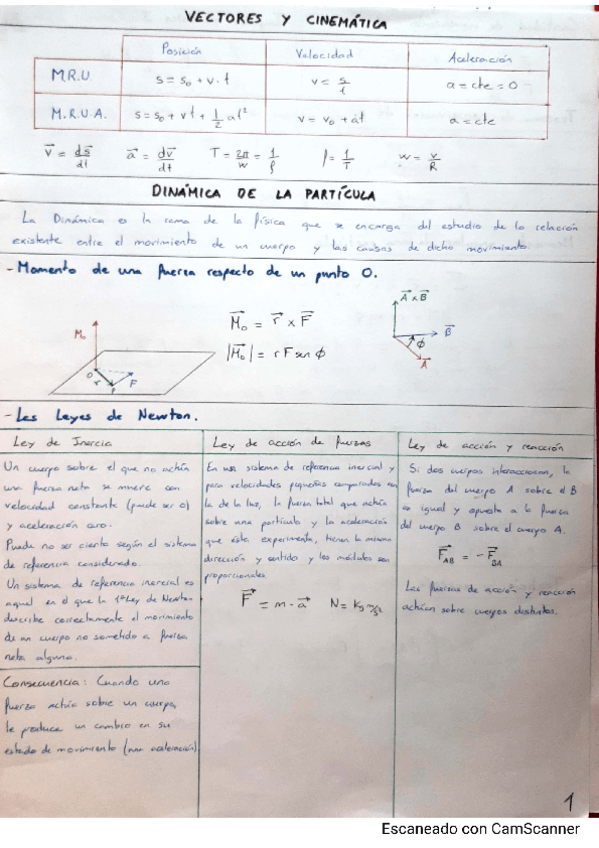 VECTORES Y CINEMÁTICA
Posición Velocidad Aceleración
M.R.U s = s₀ + v · t v = s/t a = cte = 0
M.R.U.A. s = s₀ + vt + 1/2 at² v = v₀ + at a = cte
v⃗ = ds⃗/dt a⃗ = dv⃗/dt T = 2π/w = 1/f f = 1/T w = v/R
DINÁMICA DE LA PARTÍCULA
La Dinámica es la rama de la física que se encarga del estudio de la relación
existente entre el movimiento de un cuerpo y las causas de dicho movimiento.
- Momento de una fuerza respecto de un punto O.
M⃗₀ = r⃗ x F⃗
|M⃗₀| = r F sen ϕ
M₀
O
r
F
A⃗ x B⃗
B⃗
ϕ
A⃗
- Les Leyes de Newton.
Ley de Inercia
Un cuerpo sobre el que no actúa
una fuerza neta se mueve con
velocidad constante (puede ser 0)
y aceleración cero.
Puede no ser cierto según el sistema
de referencia considerado.
Un sistema de referencia inercial es
aquel en el que la 1ª Ley de Newton
describe correctamente el movimiento
de un cuerpo no sometido a fuerza
neta alguna.
Consecuencia: Cuando una
fuerza actúa sobre un cuerpo,
le produce un cambio en su
estado de movimiento (una aceleración)
Ley de acción de fuerzas
En un sistema de referencia inercial y
para velocidades pequeñas comparadas con
la de la luz, la fuerza total que actúa
sobre una partícula y la aceleración
que ésta experimenta, tienen la misma
dirección y sentido y los módulos son
proporcionales
F⃗ = m · a⃗ N = Kg m/s²
Ley de acción y reacción
Si dos cuerpos interaccionan, la
fuerza del cuerpo A sobre el B
es igual y opuesta a la fuerza
del cuerpo B sobre el cuerpo A.
F⃗AB = - F⃗BA
Las fuerzas de acción y reacción
actúan sobre cuerpos distintos.
1
Escaneado con CamScanner